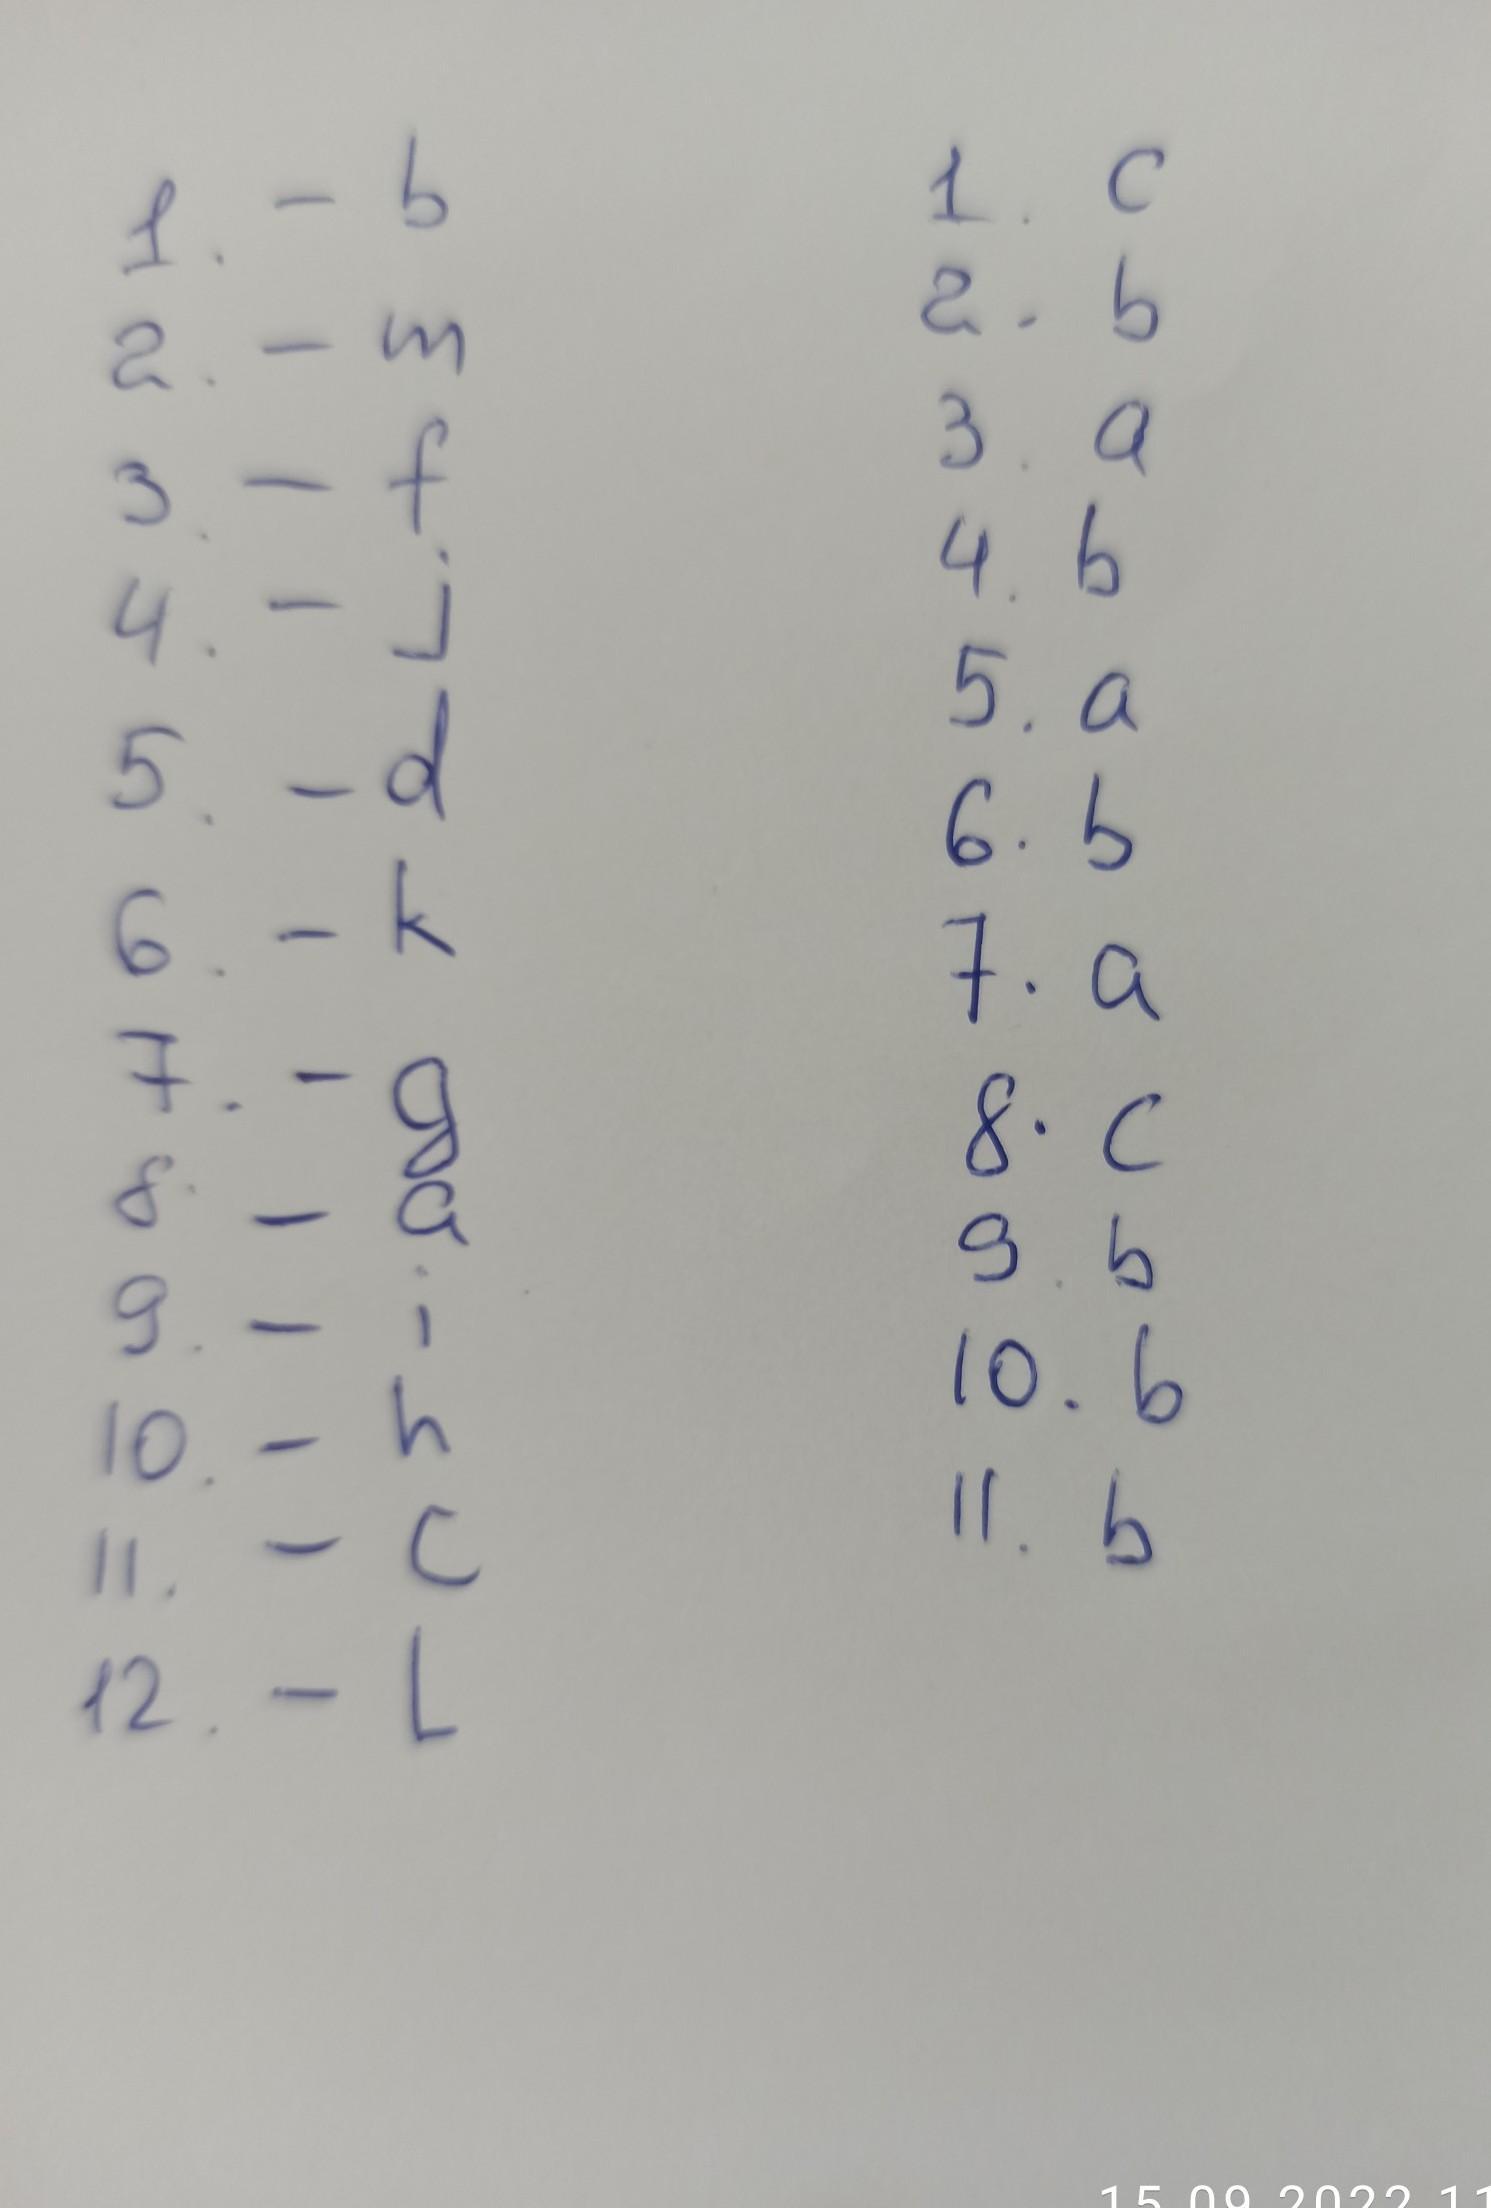 1. - b
2. - m
3. - f
4. - j
5. - d
6. - k
7. - g
8. - a
9. - i
10. - h
11. - c
12. - L
1. c
2. b
3. a
4. b
5. a
6. b
7. a
8. c
9. b
10. b
11. b
15.09.2022 11